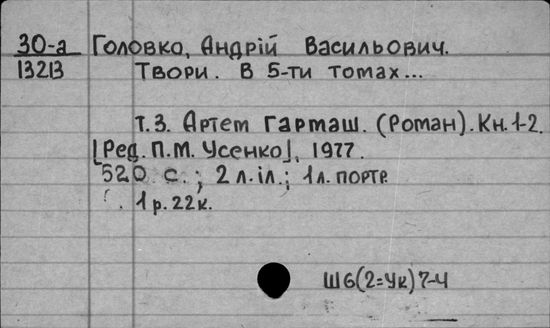 30-а Головко, Андрій Васильович.
13213 Твори. В 5-ти томах...
т.3. Артем Гармаш. (Роман). Кн. 1-2.
[Ред. П.М. Усенко], 1977.
520 с.; 2 л. іл.; 1 л. портр.
1 р. 22 к.
Ш6(2=Ук)7-4